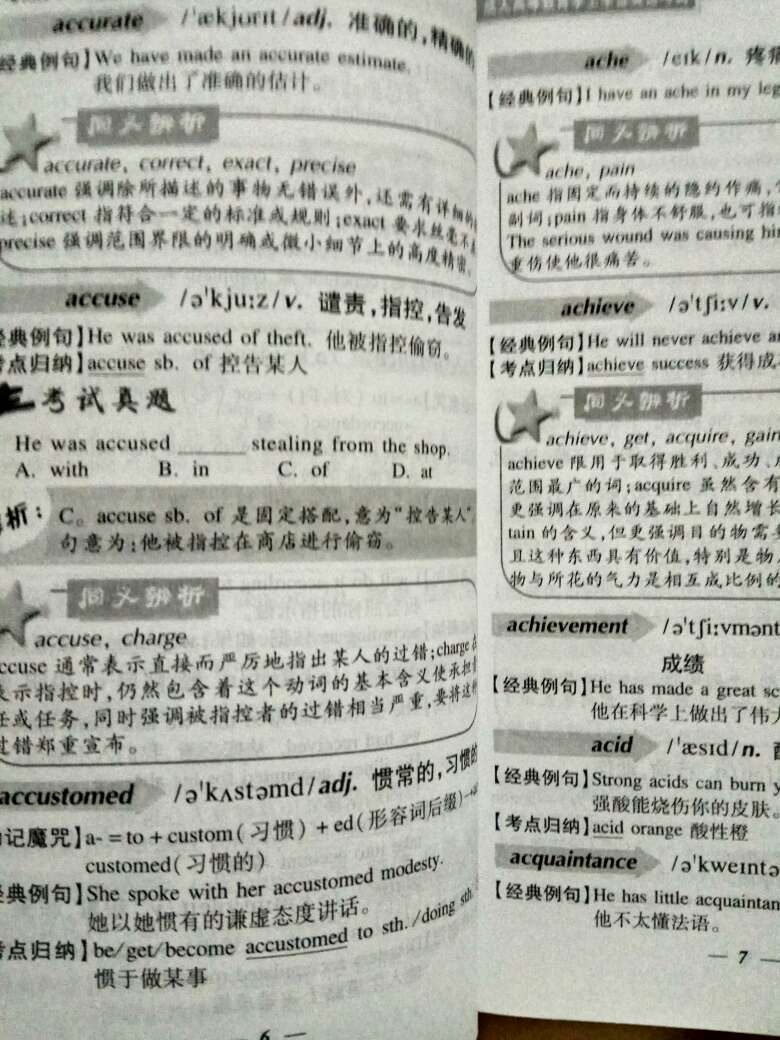 accurate /ˈækjurit/adj. 准确的,精确的
经典例句】We have made an accurate estimate.
我们做出了准确的估计。
同义辨析
accurate, correct, exact, precise
accurate 强调除所描述的事物无错误外,还需有详细的
述;correct 指符合一定的标准或规则;exact 要求丝毫不
precise 强调范围界限的明确或微小细节上的高度精密。
accuse /əˈkjuːz/v. 谴责,指控,告发
经典例句】He was accused of theft. 他被指控偷窃。
考点归纳】accuse sb. of 控告某人
考试真题
He was accused ______ stealing from the shop.
A. with B. in C. of D. at
析: C。accuse sb. of 是固定搭配,意为“控告某人”
句意为:他被指控在商店进行偷窃。
同义辨析
accuse, charge
accuse 通常表示直接而严厉地指出某人的过错;charge
表示指控时,仍然包含着这个动词的基本含义使承担责
任或任务,同时强调被指控者的过错相当严重,要将这种
过错郑重宣布。
accustomed /əˈkʌstəmd/adj. 惯常的,习惯的
记魔咒】a- = to + custom(习惯) + ed(形容词后缀)→
customed(习惯的)
经典例句】She spoke with her accustomed modesty.
她以她惯有的谦虚态度讲话。
考点归纳】be/get/become accustomed to sth./doing sth.
惯于做某事
— 6 —
ache /eɪk/n. 疼痛
【经典例句】I have an ache in my leg
同义辨析
ache, pain
ache 指固定而持续的隐约作痛,
副词;pain 指身体不舒服,也可指
The serious wound was causing him
重伤使他很痛苦。
achieve /əˈtʃiːv/v.
【经典例句】He will never achieve an
【考点归纳】achieve success 获得成功
同义辨析
achieve, get, acquire, gain
achieve 限用于取得胜利、成功、
范围最广的词;acquire 虽然含有
更强调在原来的基础上自然增长
tain 的含义,但更强调目的物需要
且这种东西具有价值,特别是物
物与所花的气力是相互成比例的
achievement /əˈtʃiːvmənt
成绩
【经典例句】He has made a great sc
他在科学上做出了伟大
acid /ˈæsɪd/n. 酸
【经典例句】Strong acids can burn y
强酸能烧伤你的皮肤。
【考点归纳】acid orange 酸性橙
acquaintance /əˈkweɪntə
【经典例句】He has little acquaintan
他不太懂法语。
— 7 —